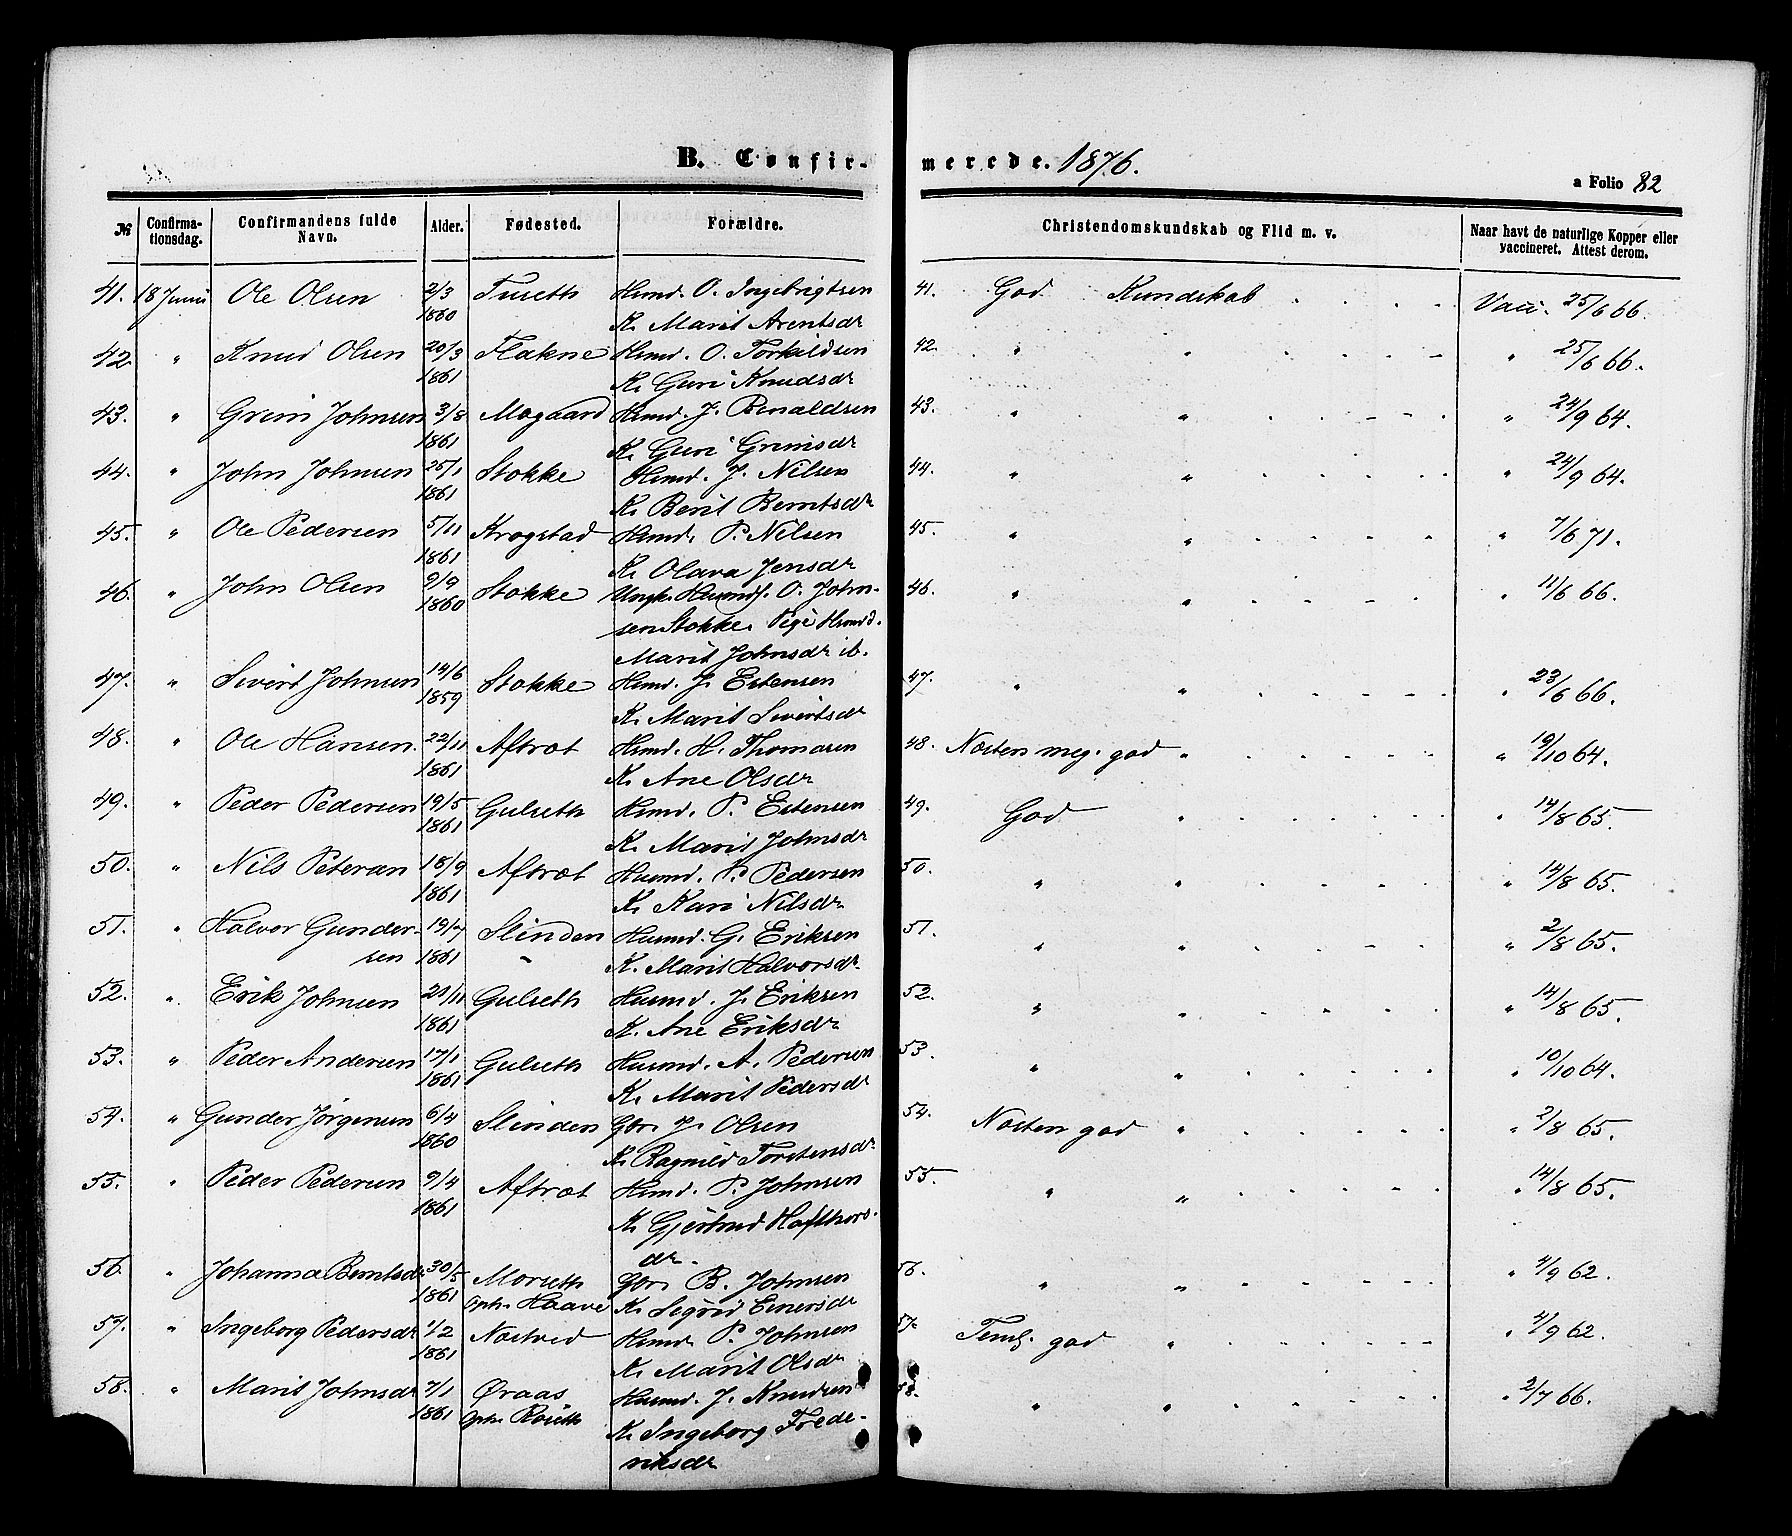 B. Confir-merede. 1876.
a Folio 82
№ Confirma-tionsdag. Confirmandens fulde Navn. Alder. Fødested. Forældre. Christendomskundskab og Flid m. v. Naar havt de naturlige Kopper eller vaccineret. Attest derom.
41. 18 Juni Ole Olsen 2/3 Tuseth Husmd. O. Ingebrigtsen 41. God Kundskab Vacc. 25/6 66.
1860 K. Marit Arentsdr
42. " Knud Olsen 20/3 Flakne Husmd. O. Torkildsen 42. " " " 25/6 66.
1861 K. Guri Knudsdr
43. " Grim Johnsen 3/8 Mogaard Husmd. J. Renaldsen 43. " " " 24/9 64.
1861 K. Guri Grimsdr
44. " John Johnsen 25/1 Stokke Husmd. J. Nilsen 44. " " " 24/9 64.
1861 K. Berit Berntsdr
45. " Ole Pedersen 5/11 Krogstad Husmd. P. Nilsen 45. " " " 7/6 71.
1861 K. Olava Jensdr
46. " John Olsen 9/9 Stokke Ungk. Husmds. O. John- 46. " " " 11/6 66.
1860 sen Stokke. Pige Husmd.
Marit Johnsdr ib.
47. " Sivert Johnsen 14/6 Stokke Husmd. J. Estensen 47. " " " 23/6 66.
1859 K. Marit Sivertsdr
48. " Ole Hansen 22/11 Aftret Husmd. H. Thomasen 48. Næsten meg. god " " 19/10 64.
1861 K. Ane Olsdr
49. " Peder Pedersen 19/5 Gulseth Husmd. P. Estensen 49. God " " 14/8 65.
1861 K. Marit Johnsdr
50. " Nils Petersen 18/9 Aftret Husmd. P. Pedersen 50. " " " 14/8 65.
1861 K. Kari Nilsdr
51. " Halvor Gunder- 19/7 Slinden Husmd. G. Eriksen 51. " " " 2/8 65.
sen 1861 K. Marit Halvorsdr
52. " Erik Johnsen 21/11 Gulseth Husmd. J. Eriksen 52. " " " 14/8 65.
1861 K. Ane Eriksdr
53. " Peder Andersen 17/1 Gulseth Husmd. A. Pedersen 53. " " " 10/10 64.
1861 K. Marit Pedersdr
54. " Gunder Jørgensen 6/4 Slinden Gbr. J. Olsen 54. Næsten god " " 2/8 65.
1860 K. Ragnild Torstensdr
55. " Peder Pedersen 9/4 Aftret Husmd. P. Johnsen 55. " " " 14/8 65.
1861 K. Gjertrud Hafthors-
dr.
56. " Johanna Berntsdr 30/5 Morseth Gbr. B. Johnsen 56. " " " 4/9 62.
1861 Oph. Haave K. Sigrid Einersdr
57. " Ingeborg Pedersdr 1/2 Nostved Husmd. P. Johnsen 57. Teml. god " " 4/9 62.
1861 K. Marit Olsdr
58. " Marit Johnsdr 7/1 Øraas Husmd. J. Knudsen 58. " " " 2/7 66.
1861 Oph. Roseth K. Ingeborg Frede-
riksdr